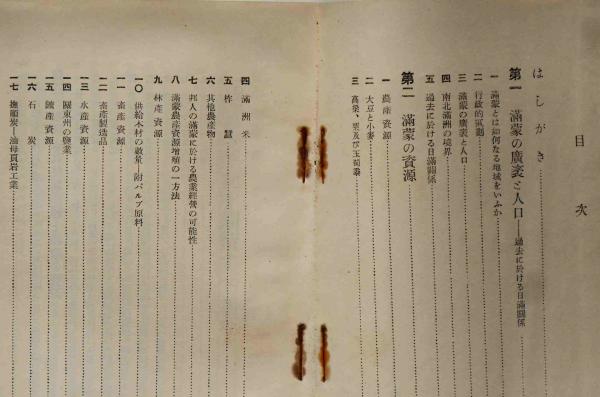 目次
はしがき
第一 滿蒙の廣袤と人口——過去に於ける日滿關係
一 滿蒙とは如何なる地域をいふか
二 行政的區劃
三 滿蒙の廣袤と人口
四 南北滿洲の境界
五 過去に於ける日滿關係
第二 滿蒙の資源
一 農產資源
二 大豆と小麥
三 高粱、粟及び玉蜀黍
四 滿洲米
五 柞蠶
六 其他農產物
七 邦人の滿蒙に於ける農業經營の可能性
八 滿蒙農產資源增殖の一方法
九 林產資源
一〇 供給木材の數量—附パルプ原料
一一 畜產資源
一二 畜產製造品
一三 水產資源
一四 關東州の鹽業
一五 鑛產資源
一六 石炭
一七 撫順炭—油母頁岩工業